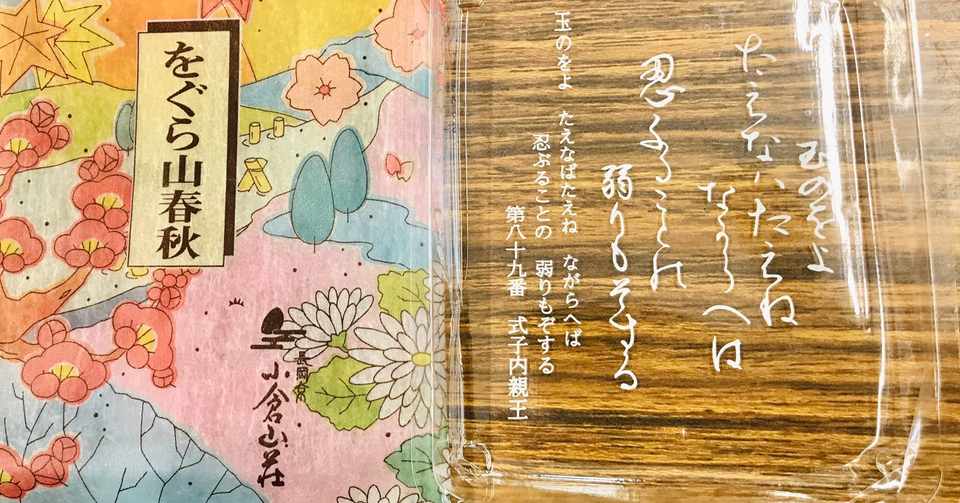 をぐら山春秋
長岡京
小倉山荘
玉のをよ
たえなハたえね
なからへは
忍ふることの
弱りもそする
玉のをよ たえなばたえね ながらへば
忍ぶることの 弱りもぞする
第八十九番 式子内親王